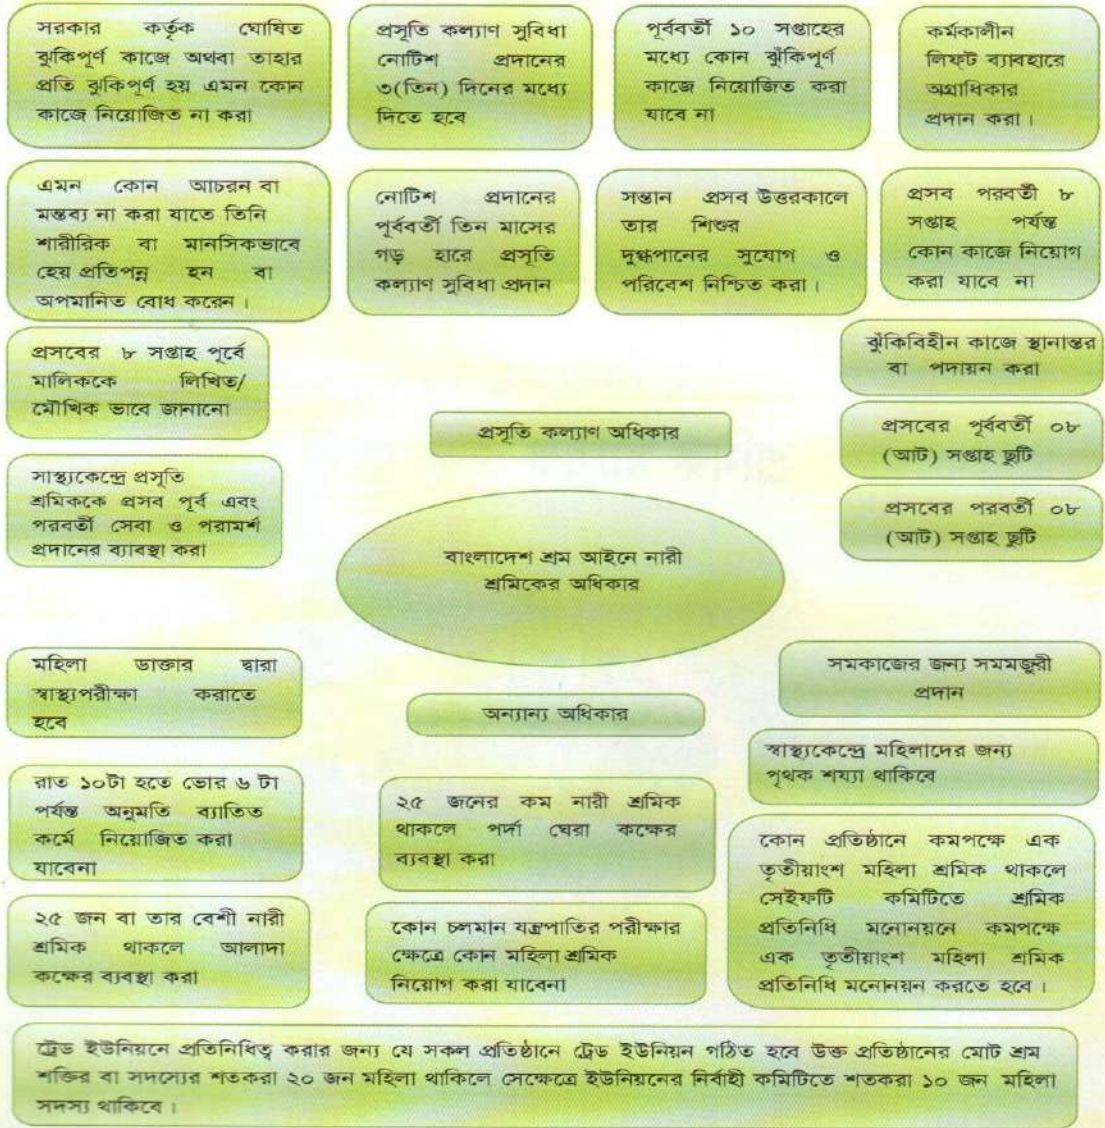 সরকার কর্তৃক ঘোষিত
ঝুকিপূর্ণ কাজে অথবা তাহার
প্রতি ঝুকিপূর্ণ হয় এমন কোন
কাজে নিয়োজিত না করা
প্রসূতি কল্যাণ সুবিধা
নোটিশ প্রদানের
৩(তিন) দিনের মধ্যে
দিতে হবে
পূর্ববর্তী ১০ সপ্তাহের
মধ্যে কোন ঝুঁকিপূর্ণ
কাজে নিয়োজিত করা
যাবে না
কর্মকালীন
লিফ্ট ব্যাবহারে
অগ্রাধিকার
প্রদান করা।
এমন কোন আচরন বা
মন্তব্য না করা যাতে তিনি
শারীরিক বা মানসিকভাবে
হেয় প্রতিপন্ন হন বা
অপমানিত বোধ করেন।
নোটিশ প্রদানের
পূর্ববর্তী তিন মাসের
গড় হারে প্রসূতি
কল্যাণ সুবিধা প্রদান
সন্তান প্রসব উত্তরকালে
তার শিশুর
দুগ্ধপানের সুযোগ ও
পরিবেশ নিশ্চিত করা।
প্রসব পরবর্তী ৮
সপ্তাহ পর্যন্ত
কোন কাজে নিয়োগ
করা যাবে না
প্রসবের ৮ সপ্তাহ পূর্বে
মালিককে লিখিত/
মৌখিক ভাবে জানানো
ঝুঁকিবিহীন কাজে স্থানান্তর
বা পদায়ন করা
প্রসূতি কল্যাণ অধিকার
প্রসবের পূর্ববর্তী ০৮
(আট) সপ্তাহ ছুটি
সাস্থ্যকেন্দ্রে প্রসূতি
শ্রমিককে প্রসব পূর্ব এবং
পরবর্তী সেবা ও পরামর্শ
প্রদানের ব্যাবস্থা করা
প্রসবের পরবর্তী ০৮
(আট) সপ্তাহ ছুটি
বাংলাদেশ শ্রম আইনে নারী
শ্রমিকের অধিকার
মহিলা ডাক্তার দ্বারা
স্বাস্থ্যপরীক্ষা করাতে
হবে
অন্যান্য অধিকার
সমকাজের জন্য সমমজুরী
প্রদান
স্বাস্থ্যকেন্দ্রে মহিলাদের জন্য
পৃথক শয্যা থাকিবে
রাত ১০টা হতে ভোর ৬ টা
পর্যন্ত অনুমতি ব্যাতিত
কর্মে নিয়োজিত করা
যাবেনা
২৫ জনের কম নারী শ্রমিক
থাকলে পর্দা ঘেরা কক্ষের
ব্যবস্থা করা
কোন প্রতিষ্ঠানে কমপক্ষে এক
তৃতীয়াংশ মহিলা শ্রমিক থাকলে
সেইফটি কমিটিতে শ্রমিক
প্রতিনিধি মনোনয়নে কমপক্ষে
এক তৃতীয়াংশ মহিলা শ্রমিক
প্রতিনিধি মনোনয়ন করতে হবে।
২৫ জন বা তার বেশী নারী
শ্রমিক থাকলে আলাদা
কক্ষের ব্যবস্থা করা
কোন চলমান যন্ত্রপাতির পরীক্ষার
ক্ষেত্রে কোন মহিলা শ্রমিক
নিয়োগ করা যাবেনা
ট্রেড ইউনিয়নে প্রতিনিধিত্ব করার জন্য যে সকল প্রতিষ্ঠানে ট্রেড ইউনিয়ন গঠিত হবে উক্ত প্রতিষ্ঠানের মোট শ্রম
শক্তির বা সদস্যের শতকরা ২০ জন মহিলা থাকিলে সেক্ষেত্রে ইউনিয়নের নির্বাহী কমিটিতে শতকরা ১০ জন মহিলা
সদস্য থাকিবে।